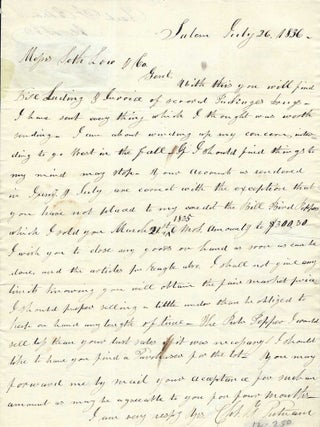 Salem July 26, 1836
Messrs Seth Low & Co
Gent
With this you will find
Bill Lading & Invoice of several Packages
I have sent every thing which I thought was worth
sending. I am about winding up my concern,
ding to go West in the Fall & if I should find things to
my mind may stop. Your accounts as rendered
in & July are correct with the exception that
you have not placed to my credit the Bill Pepper
which I sold you March 21st 1835 6 Mos. Amounts to $300.30
I wish you to close any goods on hand as soon as can be
done, and the articles for I shall not give any
limit knowing you will obtain the fair market price
I should prefer selling a little under than be obliged to
keep on hand any length of time. The Pepper I would
sell less than your last sales if it was necessary. I should
like to have you find a Purchaser for the lot. You may
forward me by mail your acceptance for such an
amount as may be agreeable to you for four months.
I am very respy Yrs Putnam